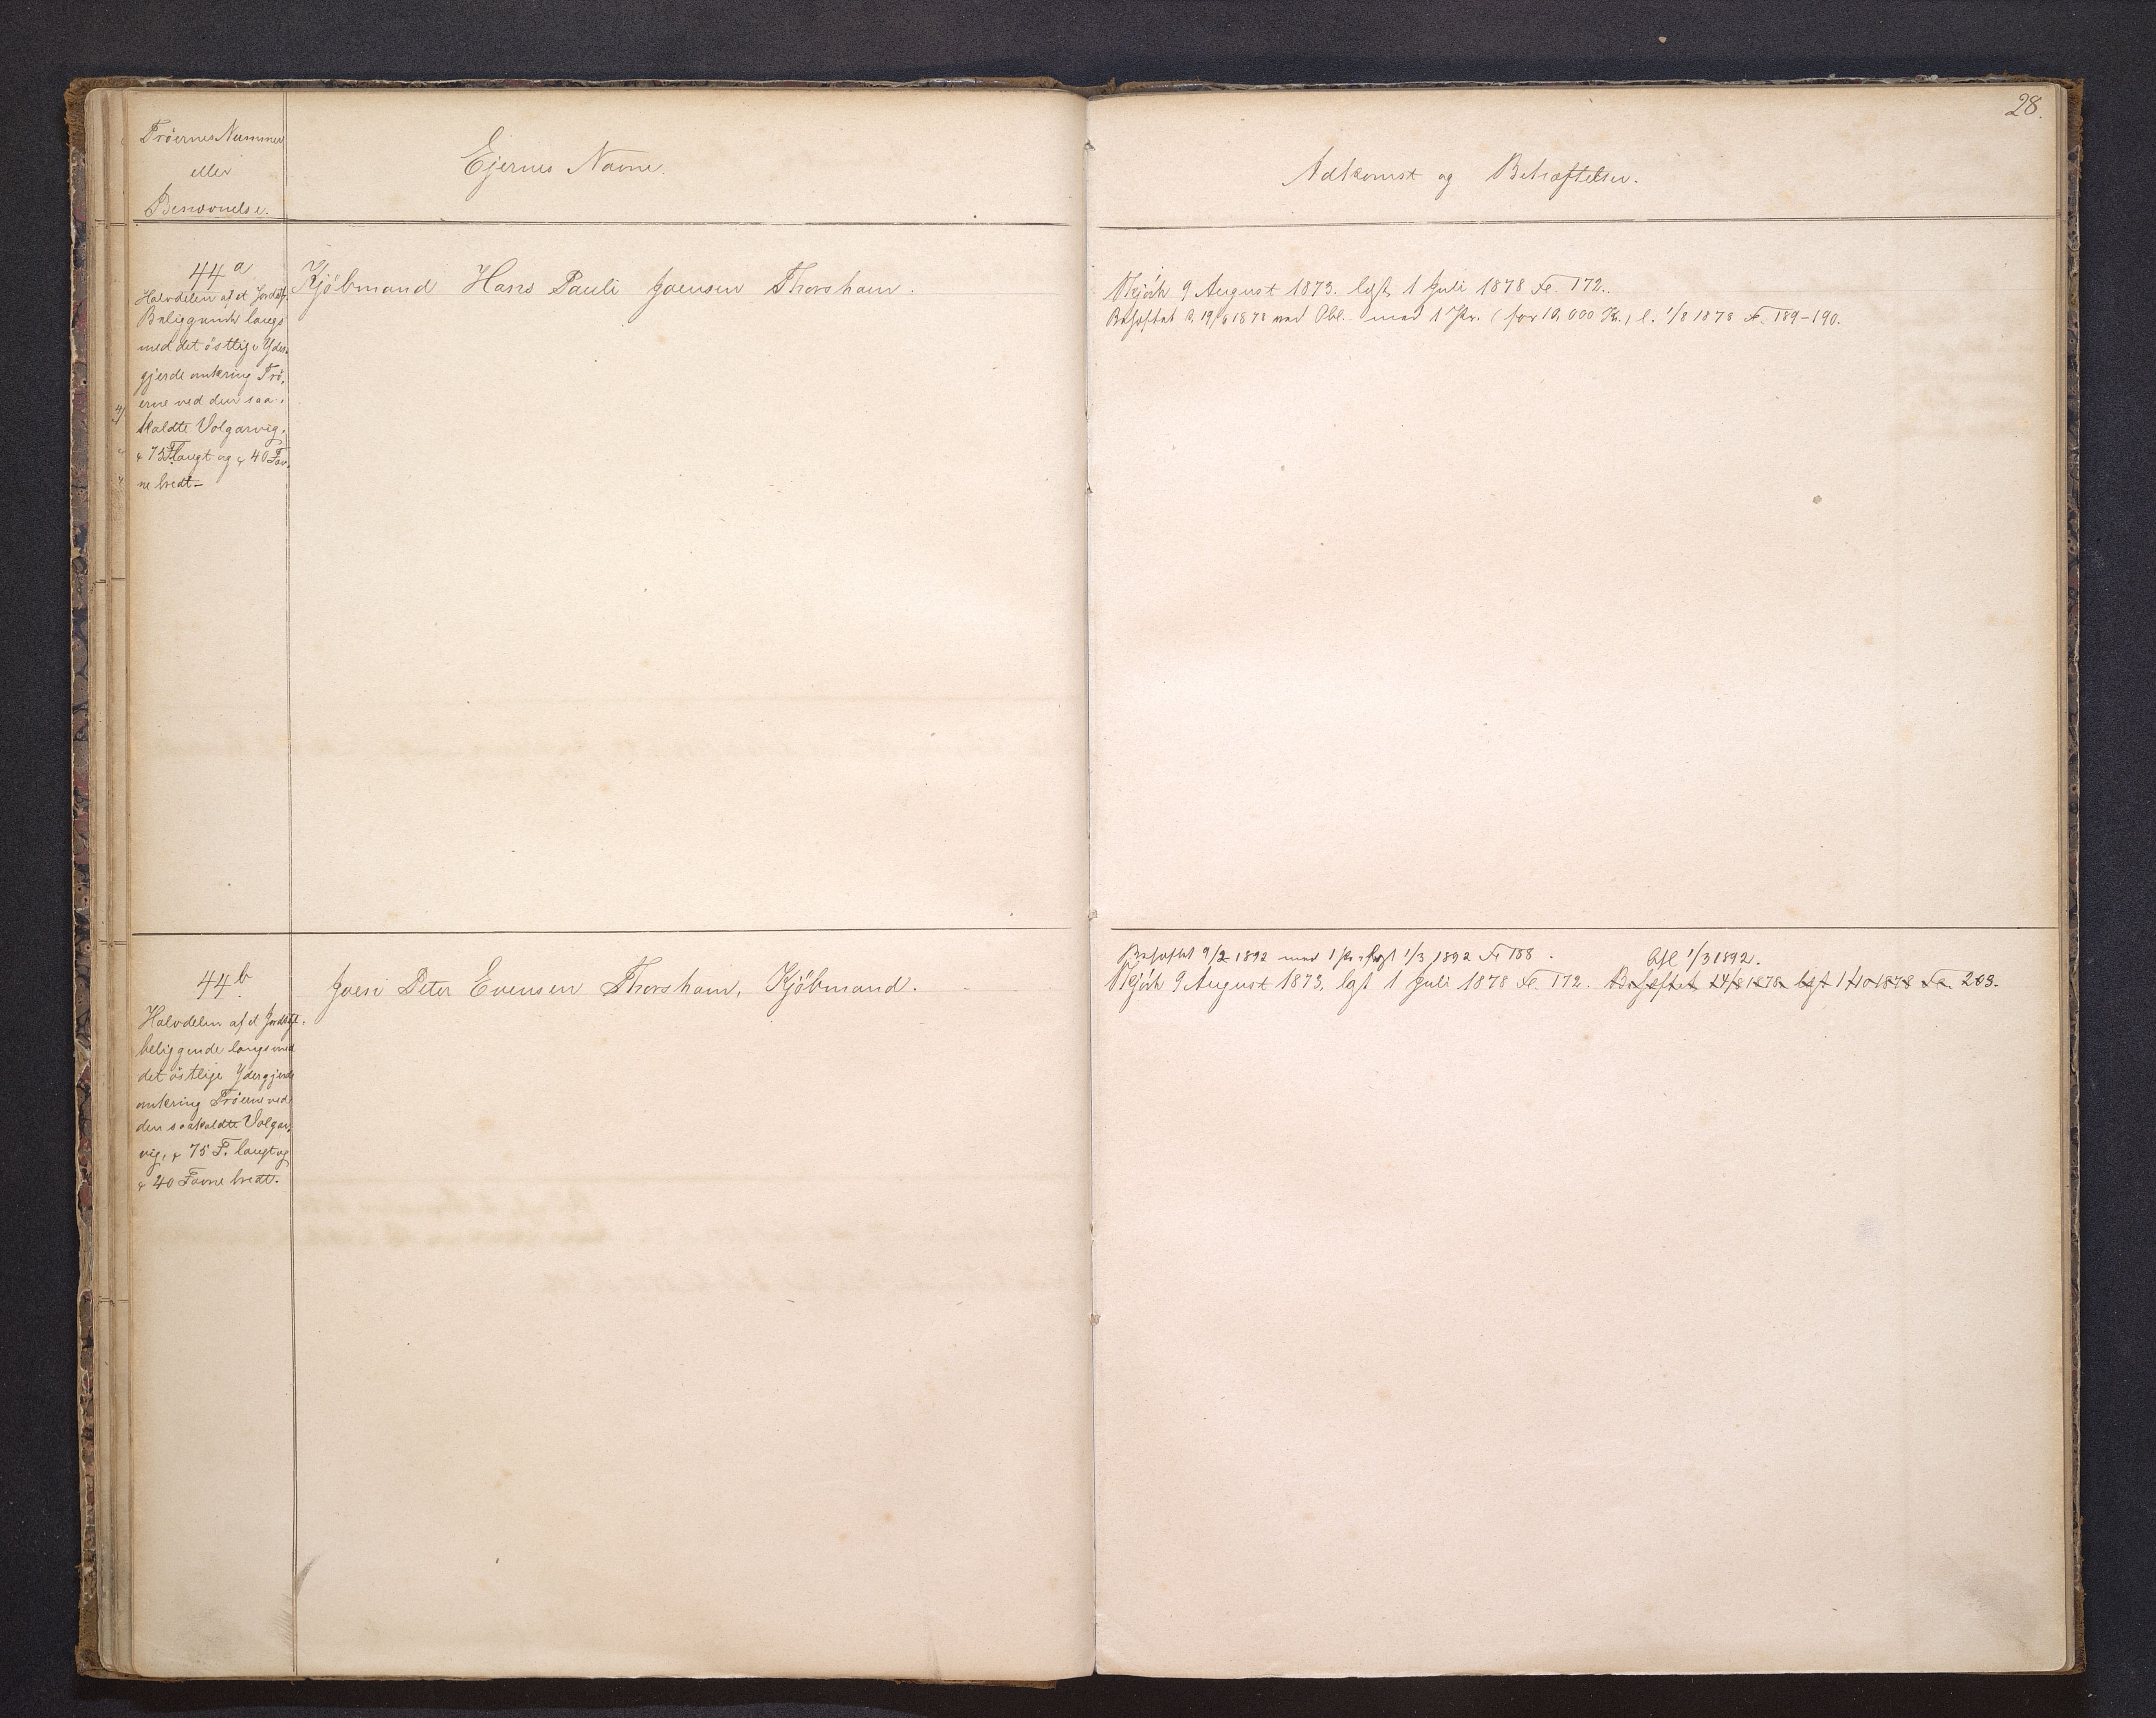 28.
Tröernes Nummer
eller
Benævnelse.
Ejernes Navne.
Adkomst og Behæftelser.
44a
Halvdelen af et Jordst.
Beliggende langs
med det östlige Yder-
gjerde omkring Trö-
erne ved den saa-
kaldte Volgarvig,
75 F. langt og 40 Fav-
ne bredt.
Kjöbmand Hans Pauli Joensen Thorshavn.
Skjöde 9 August 1873. læst 1 Juli 1878 Fe. 172.
Behæftet 19/6 1878 med Obl. med 1 Pr. (for 10,000 Kr.) l. 1/8 1878 F. 189-190.
44b
Halvdelen af et Jordst.
beliggende langs med
det östlige Ydergjerde
omkring Tröerne ved
den saakaldte Volgar-
vig, 75 F. langt og
40 Favne bredt.
Joen Peter Evensen Thorshavn, Kjöbmand.
Behæftet 9/2 1892 med 1 Pr. lægt 1/3 1892 F. 188. Afl 1/3 1892.
Skjöde 9 August 1873, lgt 1 Juli 1878 Fe. 172. Behæftet 24/8 1878 lgt 1/10 1878 Fe. 203.